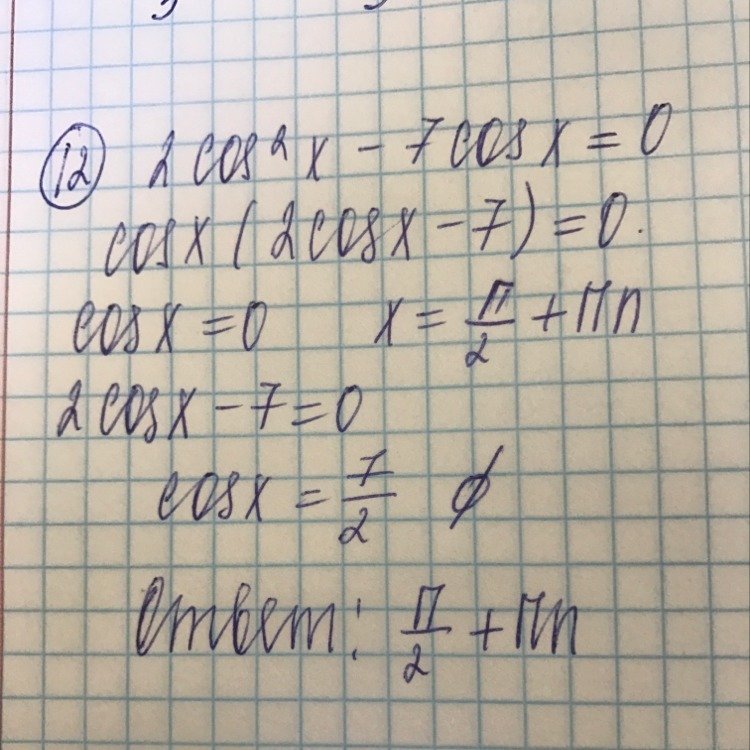 12 2cos²x - 7cosx = 0
cosx (2cosx - 7) = 0.
cosx = 0 x = п/2 + пn
2cosx - 7 = 0
cosx = 7/2 ∅
Ответ: п/2 + пn